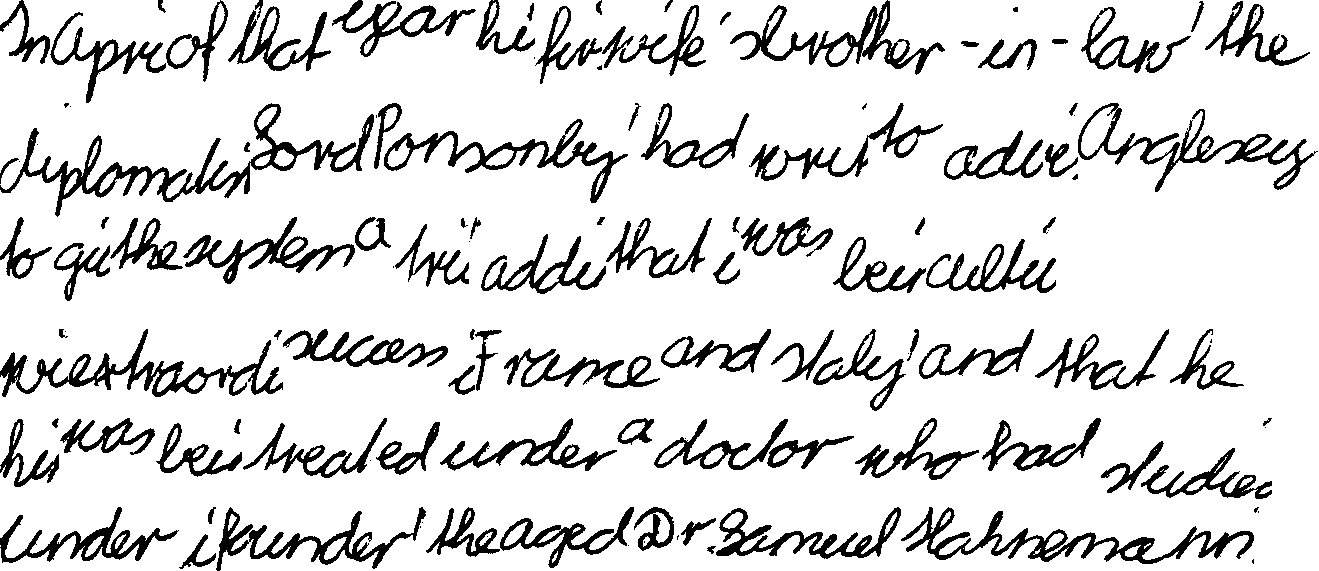 In April of that year his first wife's brother-in-law, the
diplomatist Lord Ponsonby, had written to advise Anglesey
to give the system a trial adding that it was being cultivated
with extraordinary success in France and Italy, and that he
himself was being treated under a doctor who had studied
under its founder, the aged Dr. Samuel Hahnemann.